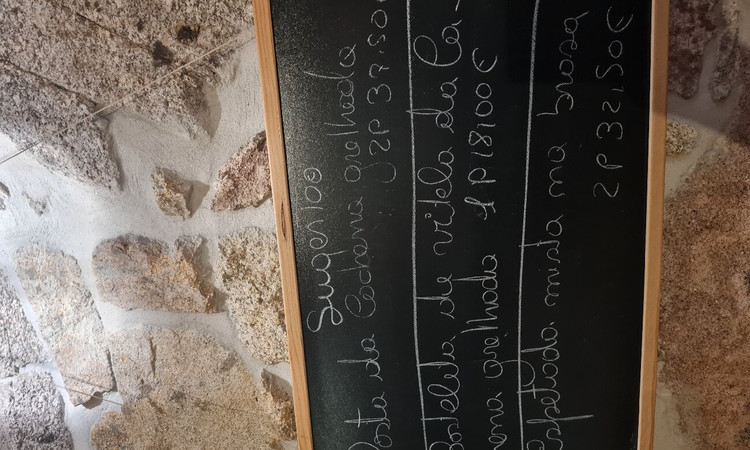 Sugestão
Posta da Cachena grelhada
2P 37,50€
Costeleta de vitela da Ca-
chena grelhada 1P 18,00€
Espetada mista na brasa
2P 32,50€